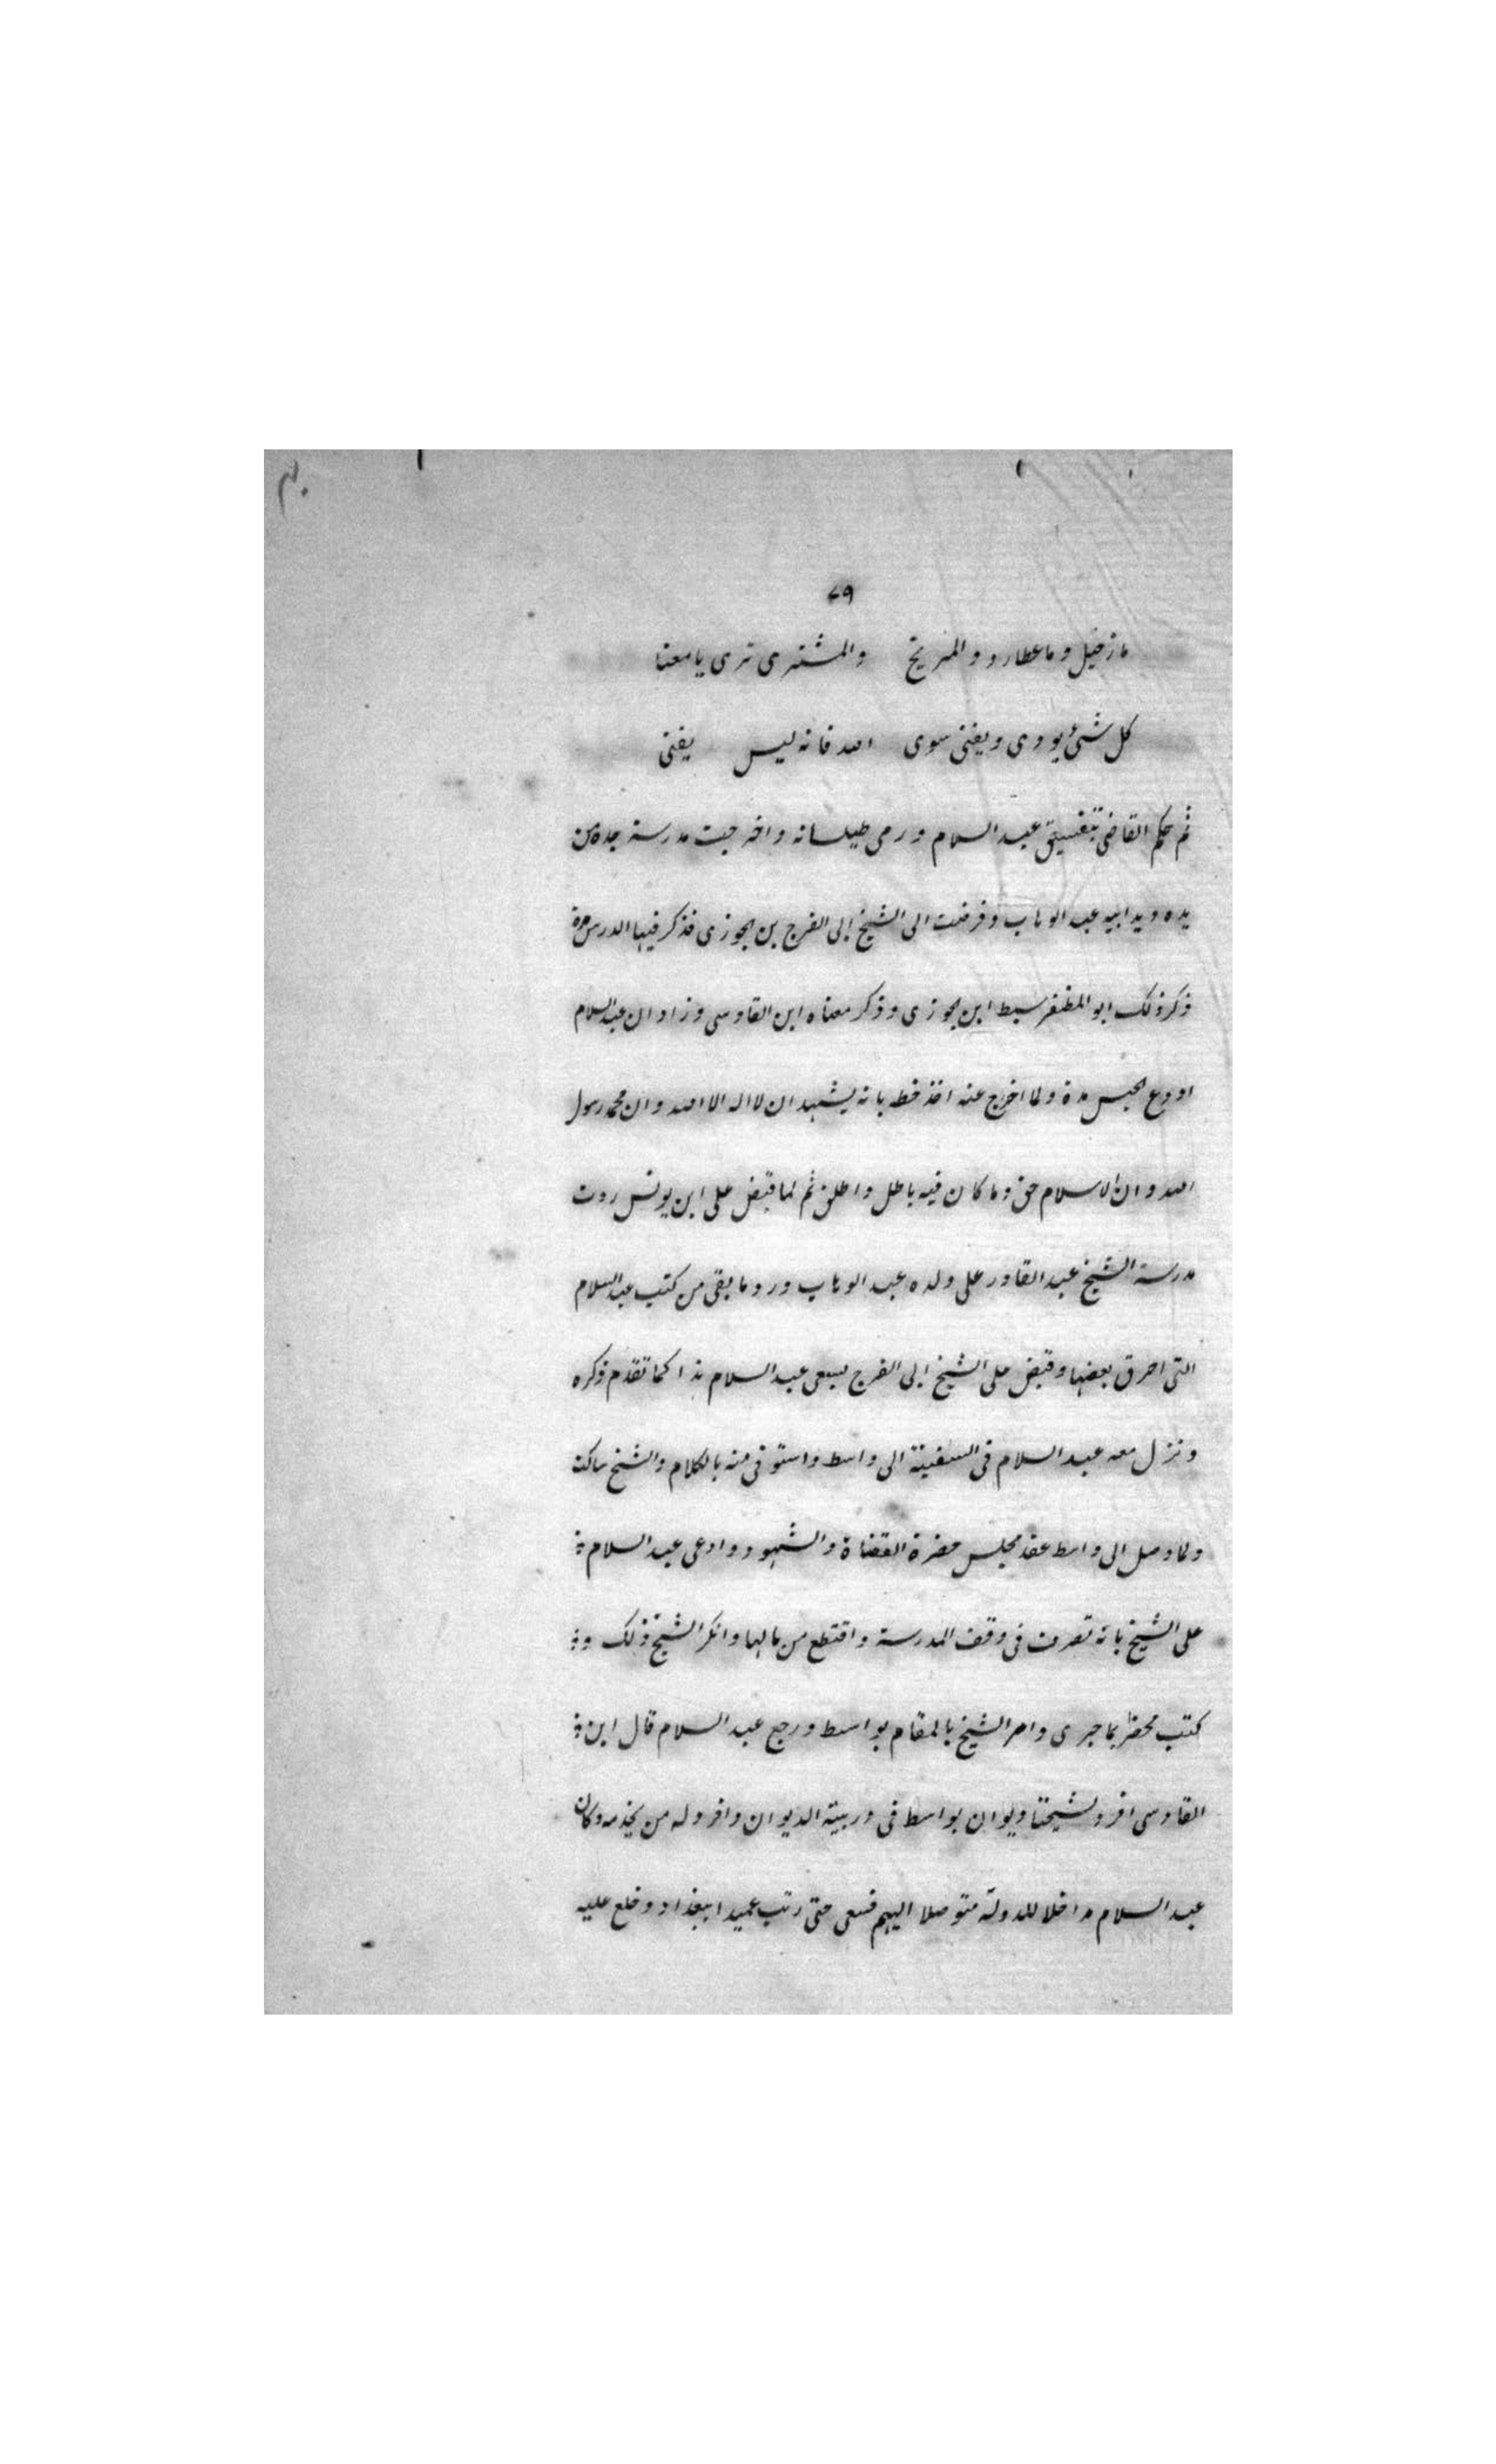 ٧٩
ما زحيل وما عطارد والمريخ والمشترى ترى يا معنا
كل شئ يودى ويفنى سوى الله فانه ليس يفنى
ثم حكم القاضى بتفسيق عبد السلام ورمى طيلسانه واخرجت مدرسة جده من
يده ويد ابيه عبد الوهاب وفرضت الى الشيخ ابى الفرج بن الجوزى فذكر فيها الدرس مدة
ذكر ذلك ابو المظفر سبط ابن الجوزى وذكر معناه ابن القادسى وزاد ان عبد السلام
اودع الحبس مدة ولما اخرج عنه اخذ خطه بانه يشهد ان لا اله الا الله وان محمد رسول
الله وان الاسلام حق وما كان فيه باطل واطلق ثم لما قبض على ابن يونس ردت
مدرسة الشيخ عبد القادر على ولده عبد الوهاب ورد ما بقى من كتب عبد السلام
التى احرق بعضها وقبض على الشيخ ابى الفرج بسعى عبد السلام هذا كما تقدم ذكره
ونزل معه عبد السلام فى السفينة الى واسط واستوفى منه بالكلام والشيخ ساكت
ولما وصل الى واسط عقد مجلس حضره القضاة والشهود وادعى عبد السلام
على الشيخ بانه تصرف فى وقف المدرسة واقتطع من مالها وانكر الشيخ ذلك و
كتب محضر بما جرى وامر الشيخ بالمقام بواسط ورجع عبد السلام قال ابن
القادسى افرد لشيخنا ديوان بواسط فى دربية الديوان وافرد له من يخدمه وكان
عبد السلام مداخلا للدولة متوصلا اليهم فسعى حتى رتب عميدا ببغداد وخلع عليه